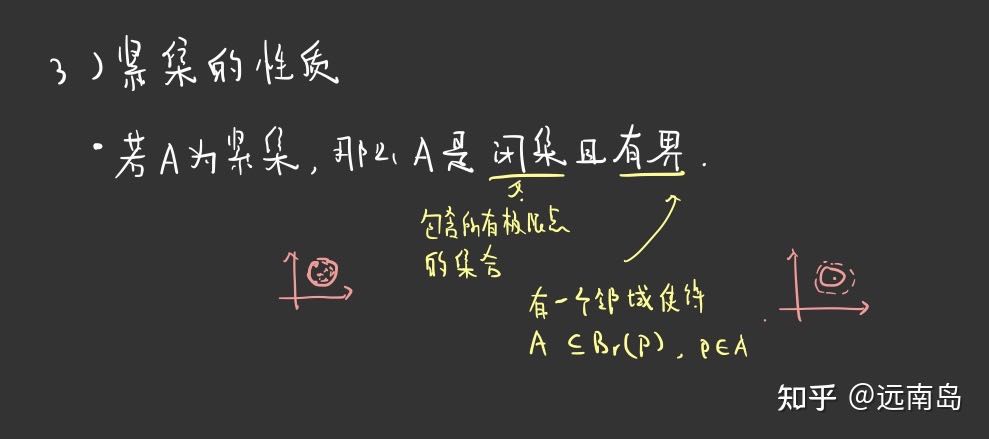 3）紧集的性质
·若A为紧集，那么A是闭集且有界.
包含所有极限点
的集合
有一个邻域使得
A ⊆ Br(p), p∈A
知乎 @远南岛